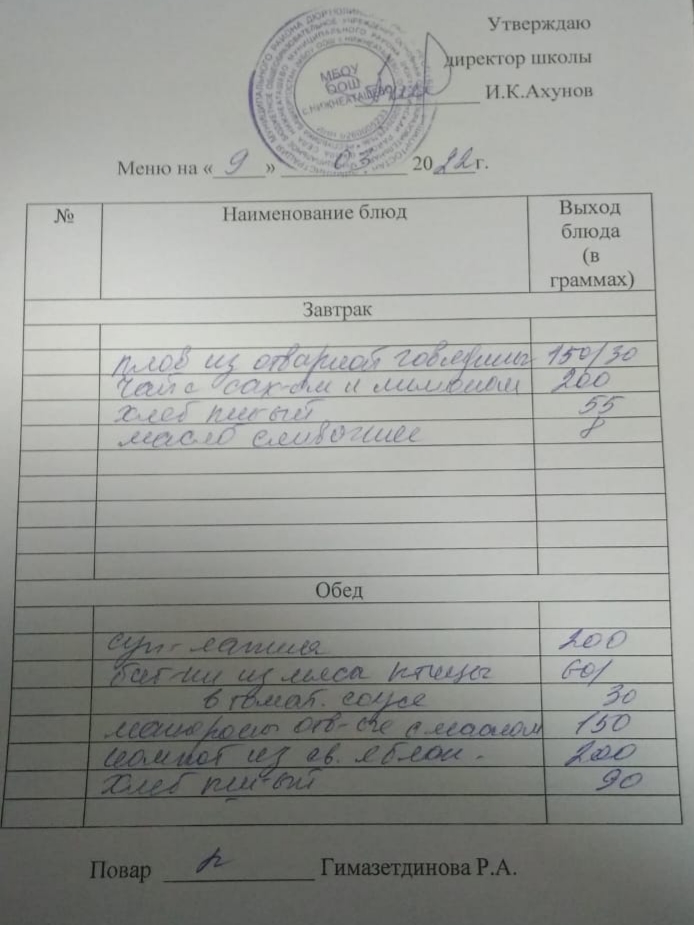 Утверждаю
директор школы
И.К.Ахунов
МБОУ
ООШ
с.НИЖНЕАТАШЕВО
Меню на «9» 03 2022г.
№ Наименование блюд Выход
блюда
(в
граммах)
Завтрак
плов из отварной говядины 150/30
чай с сах-ом и лимоном 200
хлеб пш-ый 55
масло сливочное 8
Обед
суп-лапша 200
бит-ки из мяса птицы 60/
в томат. соусе 30
макароны отв-ые с маслом 150
компот из св. яблок. 200
хлеб пш-ый 90
Повар Гимазетдинова Р.А.